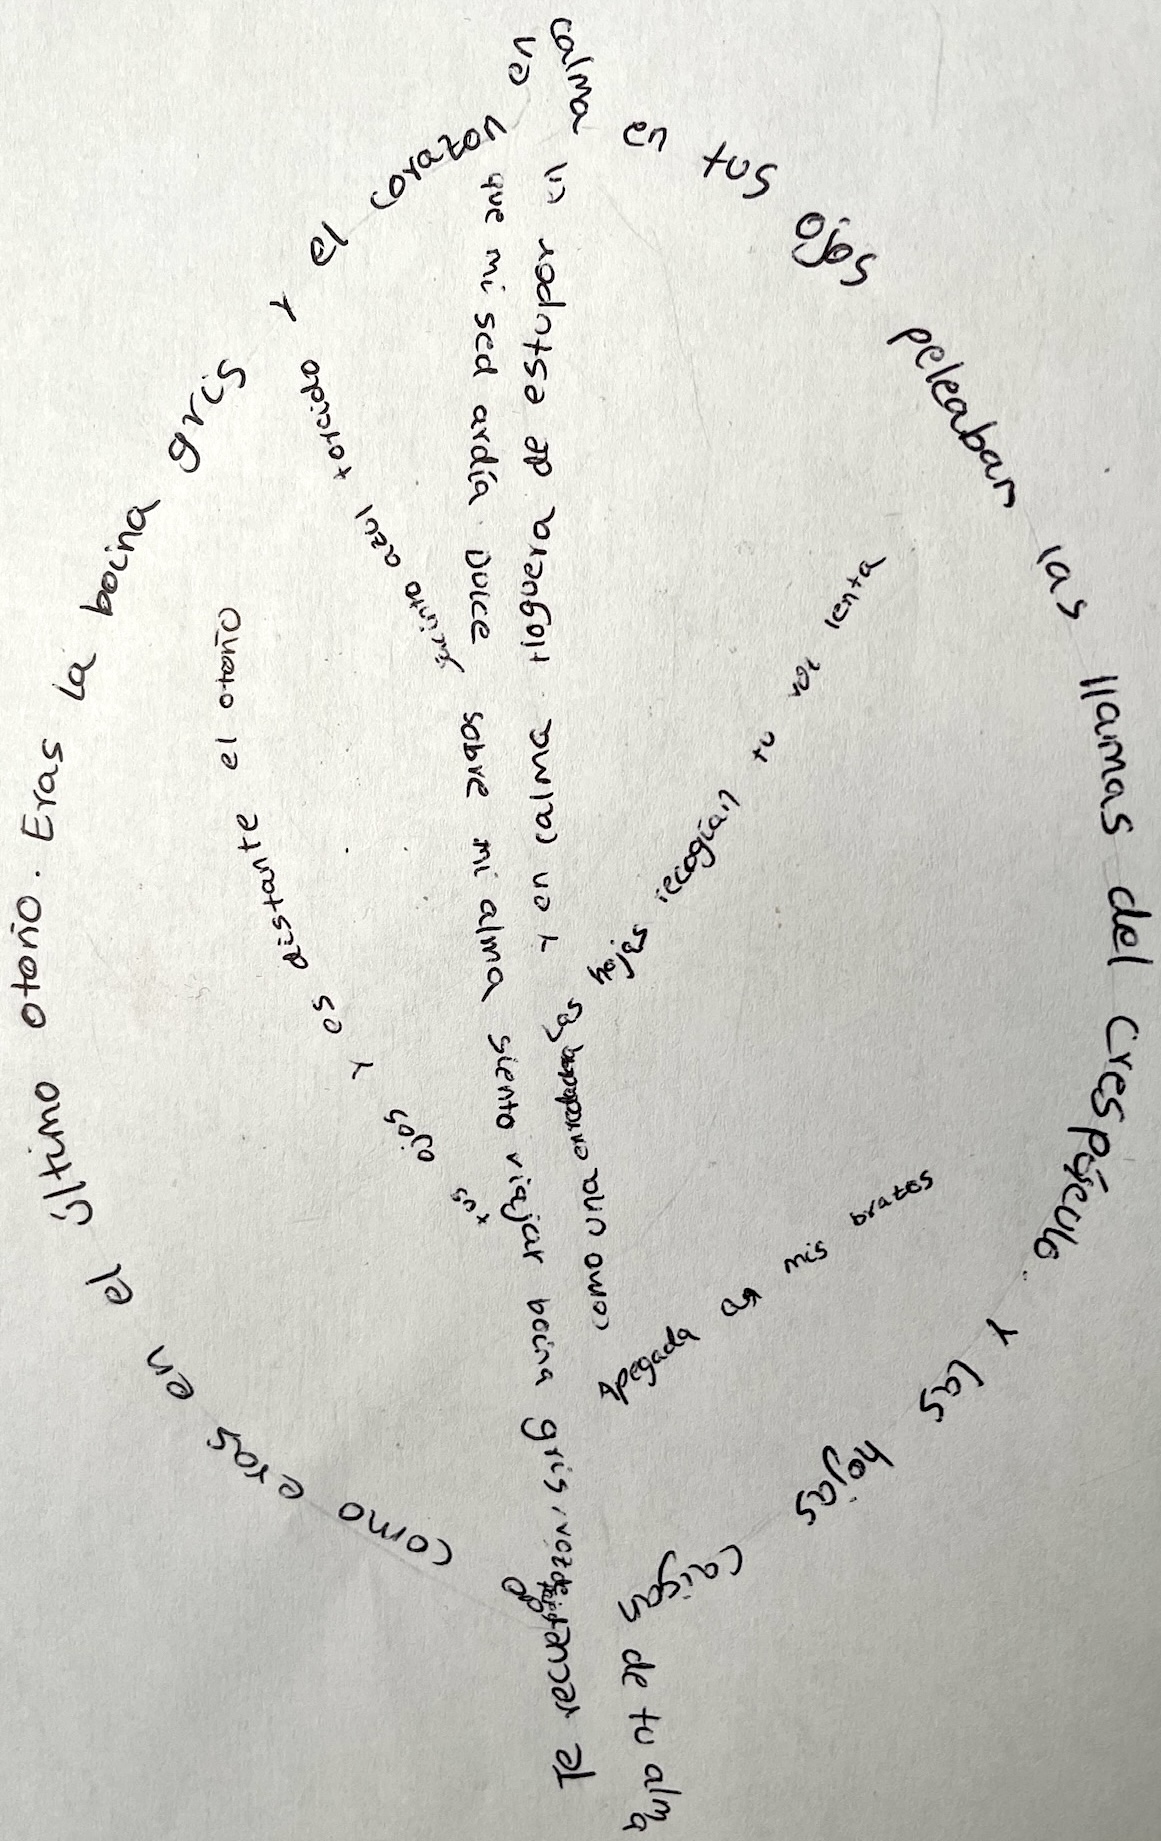 Te recuerdo como eras en el último otoño. Eras la boina gris y el corazon en calma
en tus ojos peleaban las llamas del crespúsculo.
Y las hojas caigan de tu alma
Apegada a mis brazos
como una enredadera
Las hojas recogían tu voz lenta
Y en calma Hoguera de estupor en
que mi sed ardía Dulce
jacinto azul torcido
sobre mi alma siento viajar
tus ojos y es distante el otoño
boina gris, voz de